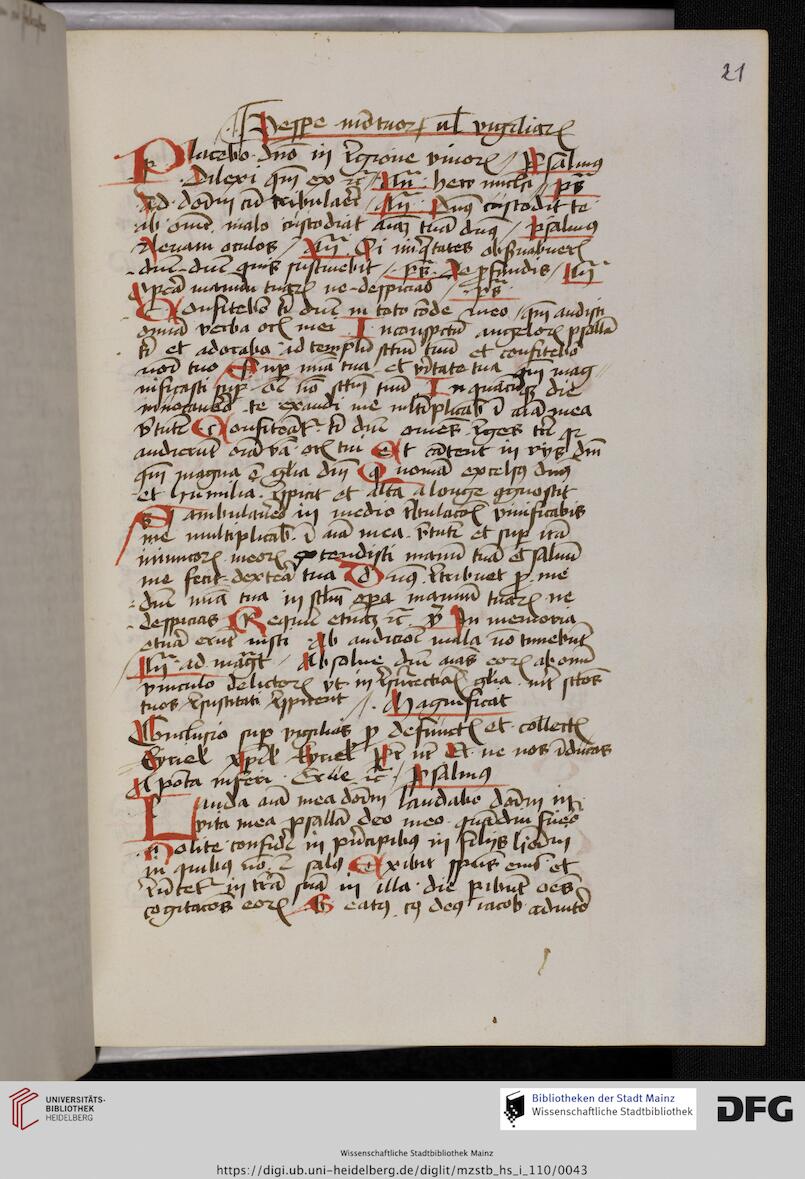 21
Vespe mortuor vl vigiliar
Placebo dno in regione vivor Psalmus
Dilexi qm ex Añ hew michi ps
Ad dom cu tribularer Añ Dns custodit te
ab omi malo custodiat aiaz tua dns psalmus
Levavi oculos Añ Si iniqtates obsvaver
dne dne quis sustinebit ps De pfundis Añ
Opera manuu tuar ne despicias ps
Confitebor ti dne in toto corde meo qm audisti
omia verba oris mei In conspectu angelor psalla
ti et adorabo ad templu sctm tuu et confitebor
noi tuo Sup mia tua et vitate tua qm mag
nificasti sup oe no sctm tuu In quacuqz die
invocavero te exaudi me mltiplicab i aia mea
vtute Confiteatr ti dne omes reges tre qr
audierut oia vba oris tui Et catent in viis dni
qm magna e glia dni Quoniam excelsus dns
et humilia respicit et alta a longe cognoscit
Si ambulavero in medio tribulacois vivificabis
me multiplicab i aia mea vtute et sup ira
inimicor meor extendisti manu tua et salvu
me fecit dextera tua Dns retribuet p me
dne mia tua in sclm opa manuu tuar ne
despicias Requie etnaz v In memoria
etna erut iusti Ab audicioe mala no timebut
Añ ad magt Absolve dne aias eor ab omi
vinculo delictor vt in resurrectiois glia int sctos
tuos resuscitati respirent Magnificat
Conclusio sup vigilias p defunctis et collectis
Kyriel xpel kyriel Pr nr Et ne nos iducas
A porta inferi Erue Psalmus
Lauda aia mea dom laudabo dom in
vita mea psalla deo meo quadiu fuero
Nolite confide in principibus in filiis hom
in quibus no e salus Exibit spus eius et
revtetr in tra sua in illa die pibut oes
cogitacoes eor Beatus cuius deus iacob adiutor
UNIVERSITÄTS-
BIBLIOTHEK
HEIDELBERG
Bibliotheken der Stadt Mainz
Wissenschaftliche Stadtbibliothek
DFG
Wissenschaftliche Stadtbibliothek Mainz
https://digi.ub.uni-heidelberg.de/diglit/mzstb_hs_i_110/0043